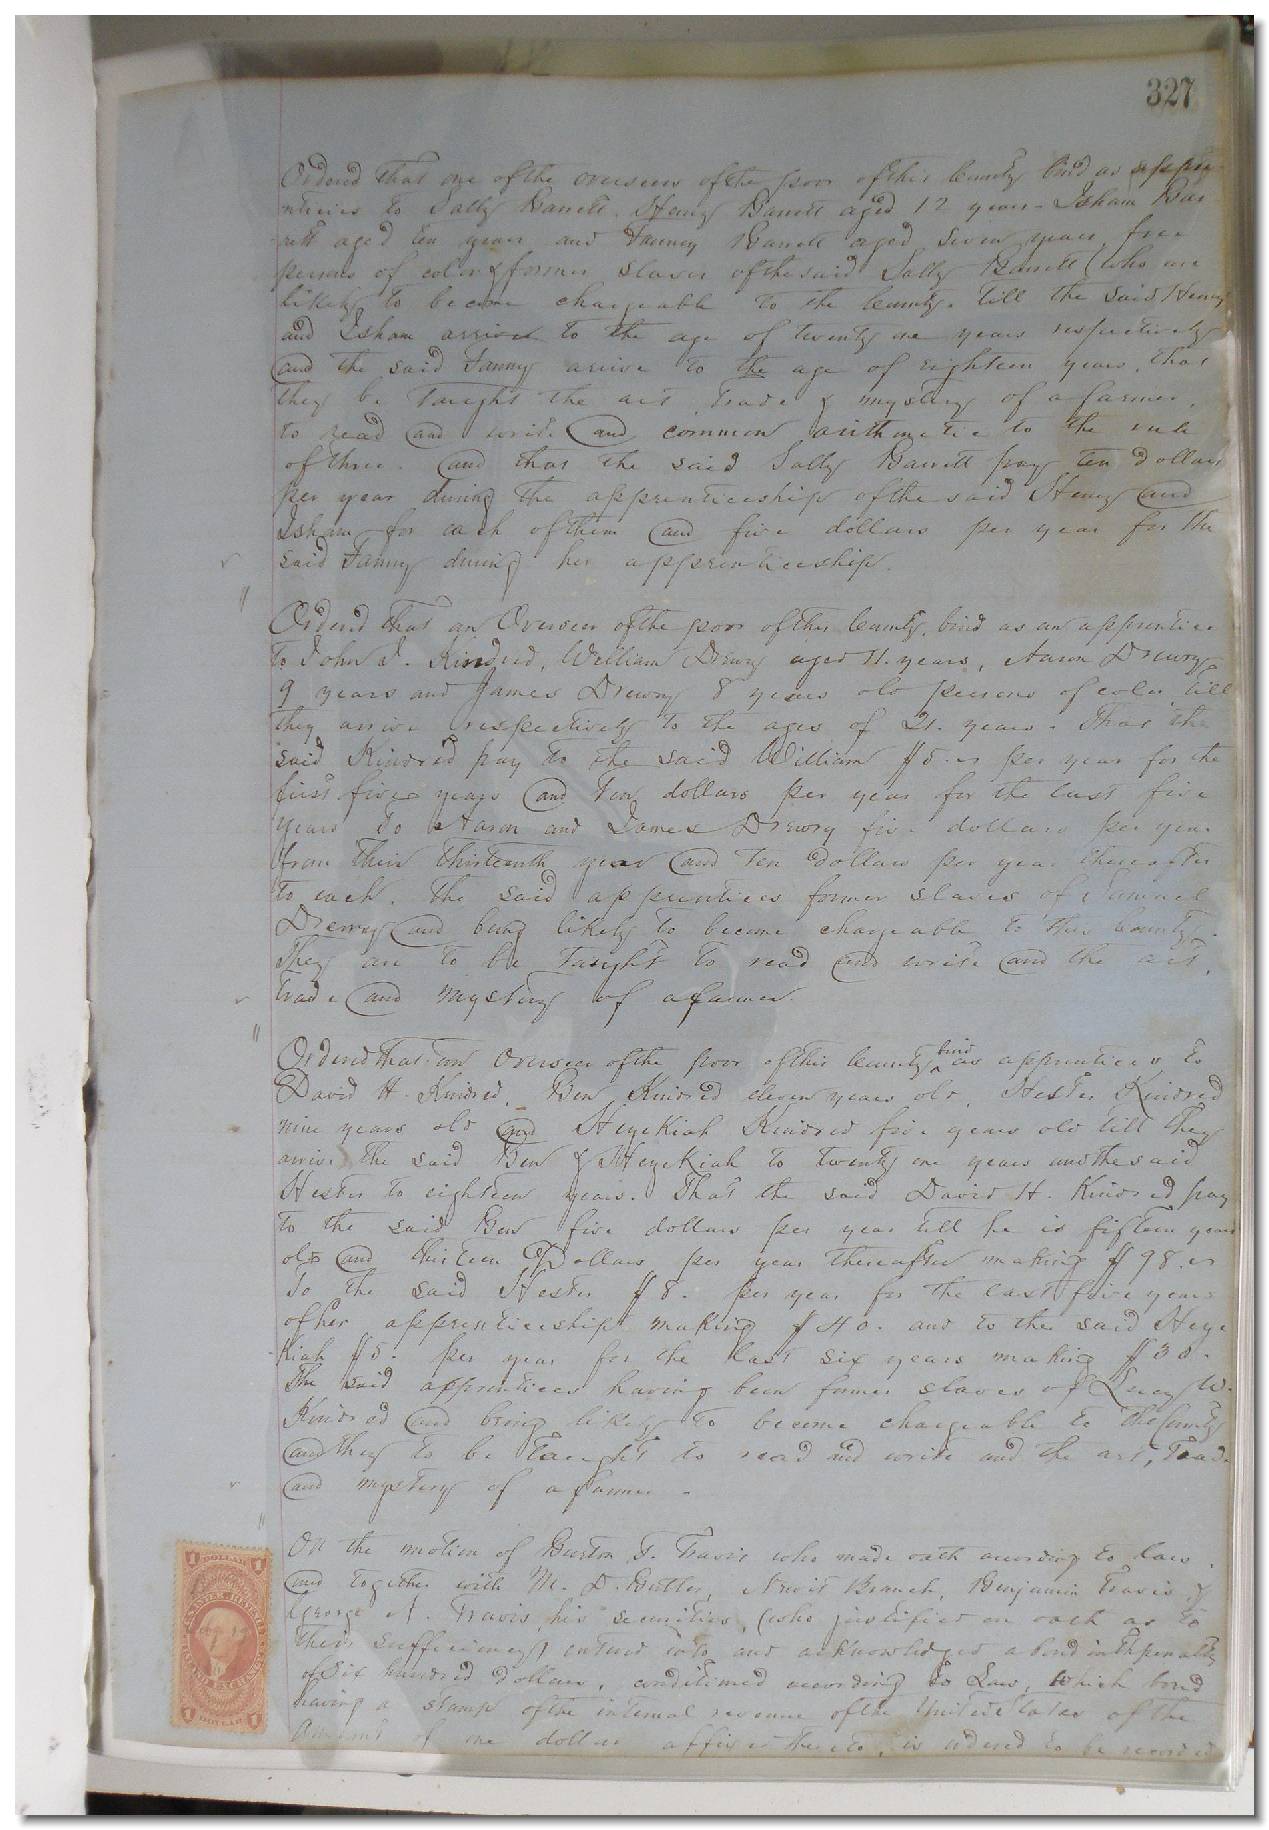 327
Ordered that one of the overseers of the poor of this County bind as appre
ntices to Sally Barrett. Henry Barrett aged 12 years - Isham Bar
rett aged ten years and Fanney Barrett aged seven years, free
persons of color & former slaves of the said Sally Barrett (who are
likely to become chargeable to the County. till the said Henry
and Isham arrives to the age of twenty one years respectively
and the said Fanny arrive to the age of eighteen years, that
they be taught the art trade & mystery of a farmer,
to read and write and common arithmetic to the rule
of three. and that the said Sally Barrett pay ten dollars
per year during the apprenticeship of the said Henry and
Isham for each of them and five dollars per year for the
said Fanny during her apprenticeship.
Ordered that an Overseer of the poor of this County, bind as an apprentice
to John J. Kindred, William Drewry aged 11. years, Aaron Drewry
9 years and James Drewry 8 years old persons of color, till
they arrive respectively to the ages of 21. years - That the
said Kindred pay to the said William $5. per year for the
first five years and Ten dollars per year for the last five
years To Aaron and James Drewry five dollars per year
from their thirteenth year and Ten dollars per year thereafter
to each. The said apprentices former slaves of Samuel
Drewry and being likely to become chargeable to this County.
They are to be taught to read and write and the art,
trade and mystery of a farmer.
Ordered that an Overseer of the poor of this County bind as apprentices to
David H. Kindred, Ben Kindred eleven years old, Hester Kindred
nine years old and Hezekiah Kindred five years old till they
arrive the said Ben & Hezekiah to twenty one years and the said
Hester to eighteen years. That the said David H. Kindred pay
to the said Ben five dollars per year till he is fifteen years
old and thirteen Dollars per year thereafter making $98.
To the said Hester $8. per year for the last five years
of her apprenticeship making $40. and to the said Heze
kiah $5. per year for the last six years making $30.
The said apprentices having been former slaves of Lucy W.
Kindred and being likely to become chargeable to the County
and they to be taught to read and write and the art, trade
and mystery of a farmer -
On the motion of Burton T. Travis who made oath according to law.
and together with M. D. Butler, Newit Branch, Benjamin Travis &
George A. Travis, his securities, (who justified on oath as to
their sufficiency) entered into and acknowledged a bond in the penalty
of Six hundred dollars, conditioned according to Law, which bond
having a stamp of the internal revenue of the United States of the
amount of one dollar affixed thereto, is ordered to be recorded
1 DOLLAR 1
U.S. INTER. REVENUE
1 DOLLAR 1